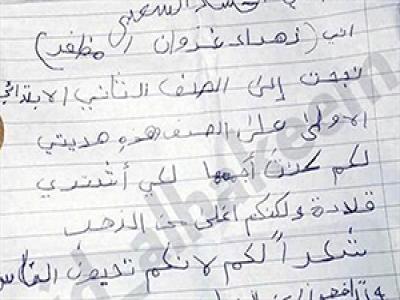 الحشد الشعبي
اني (زهراء غزوان مظفر)
نجحت إلى الصف الثاني الابتدائي
الاولى على الصف هذه هديتي
لكم كنت أجمعها لكي أشتري
قلادة ولكنكم اغلى من الذهب
شكراً لكم لانكم تحمون الناس